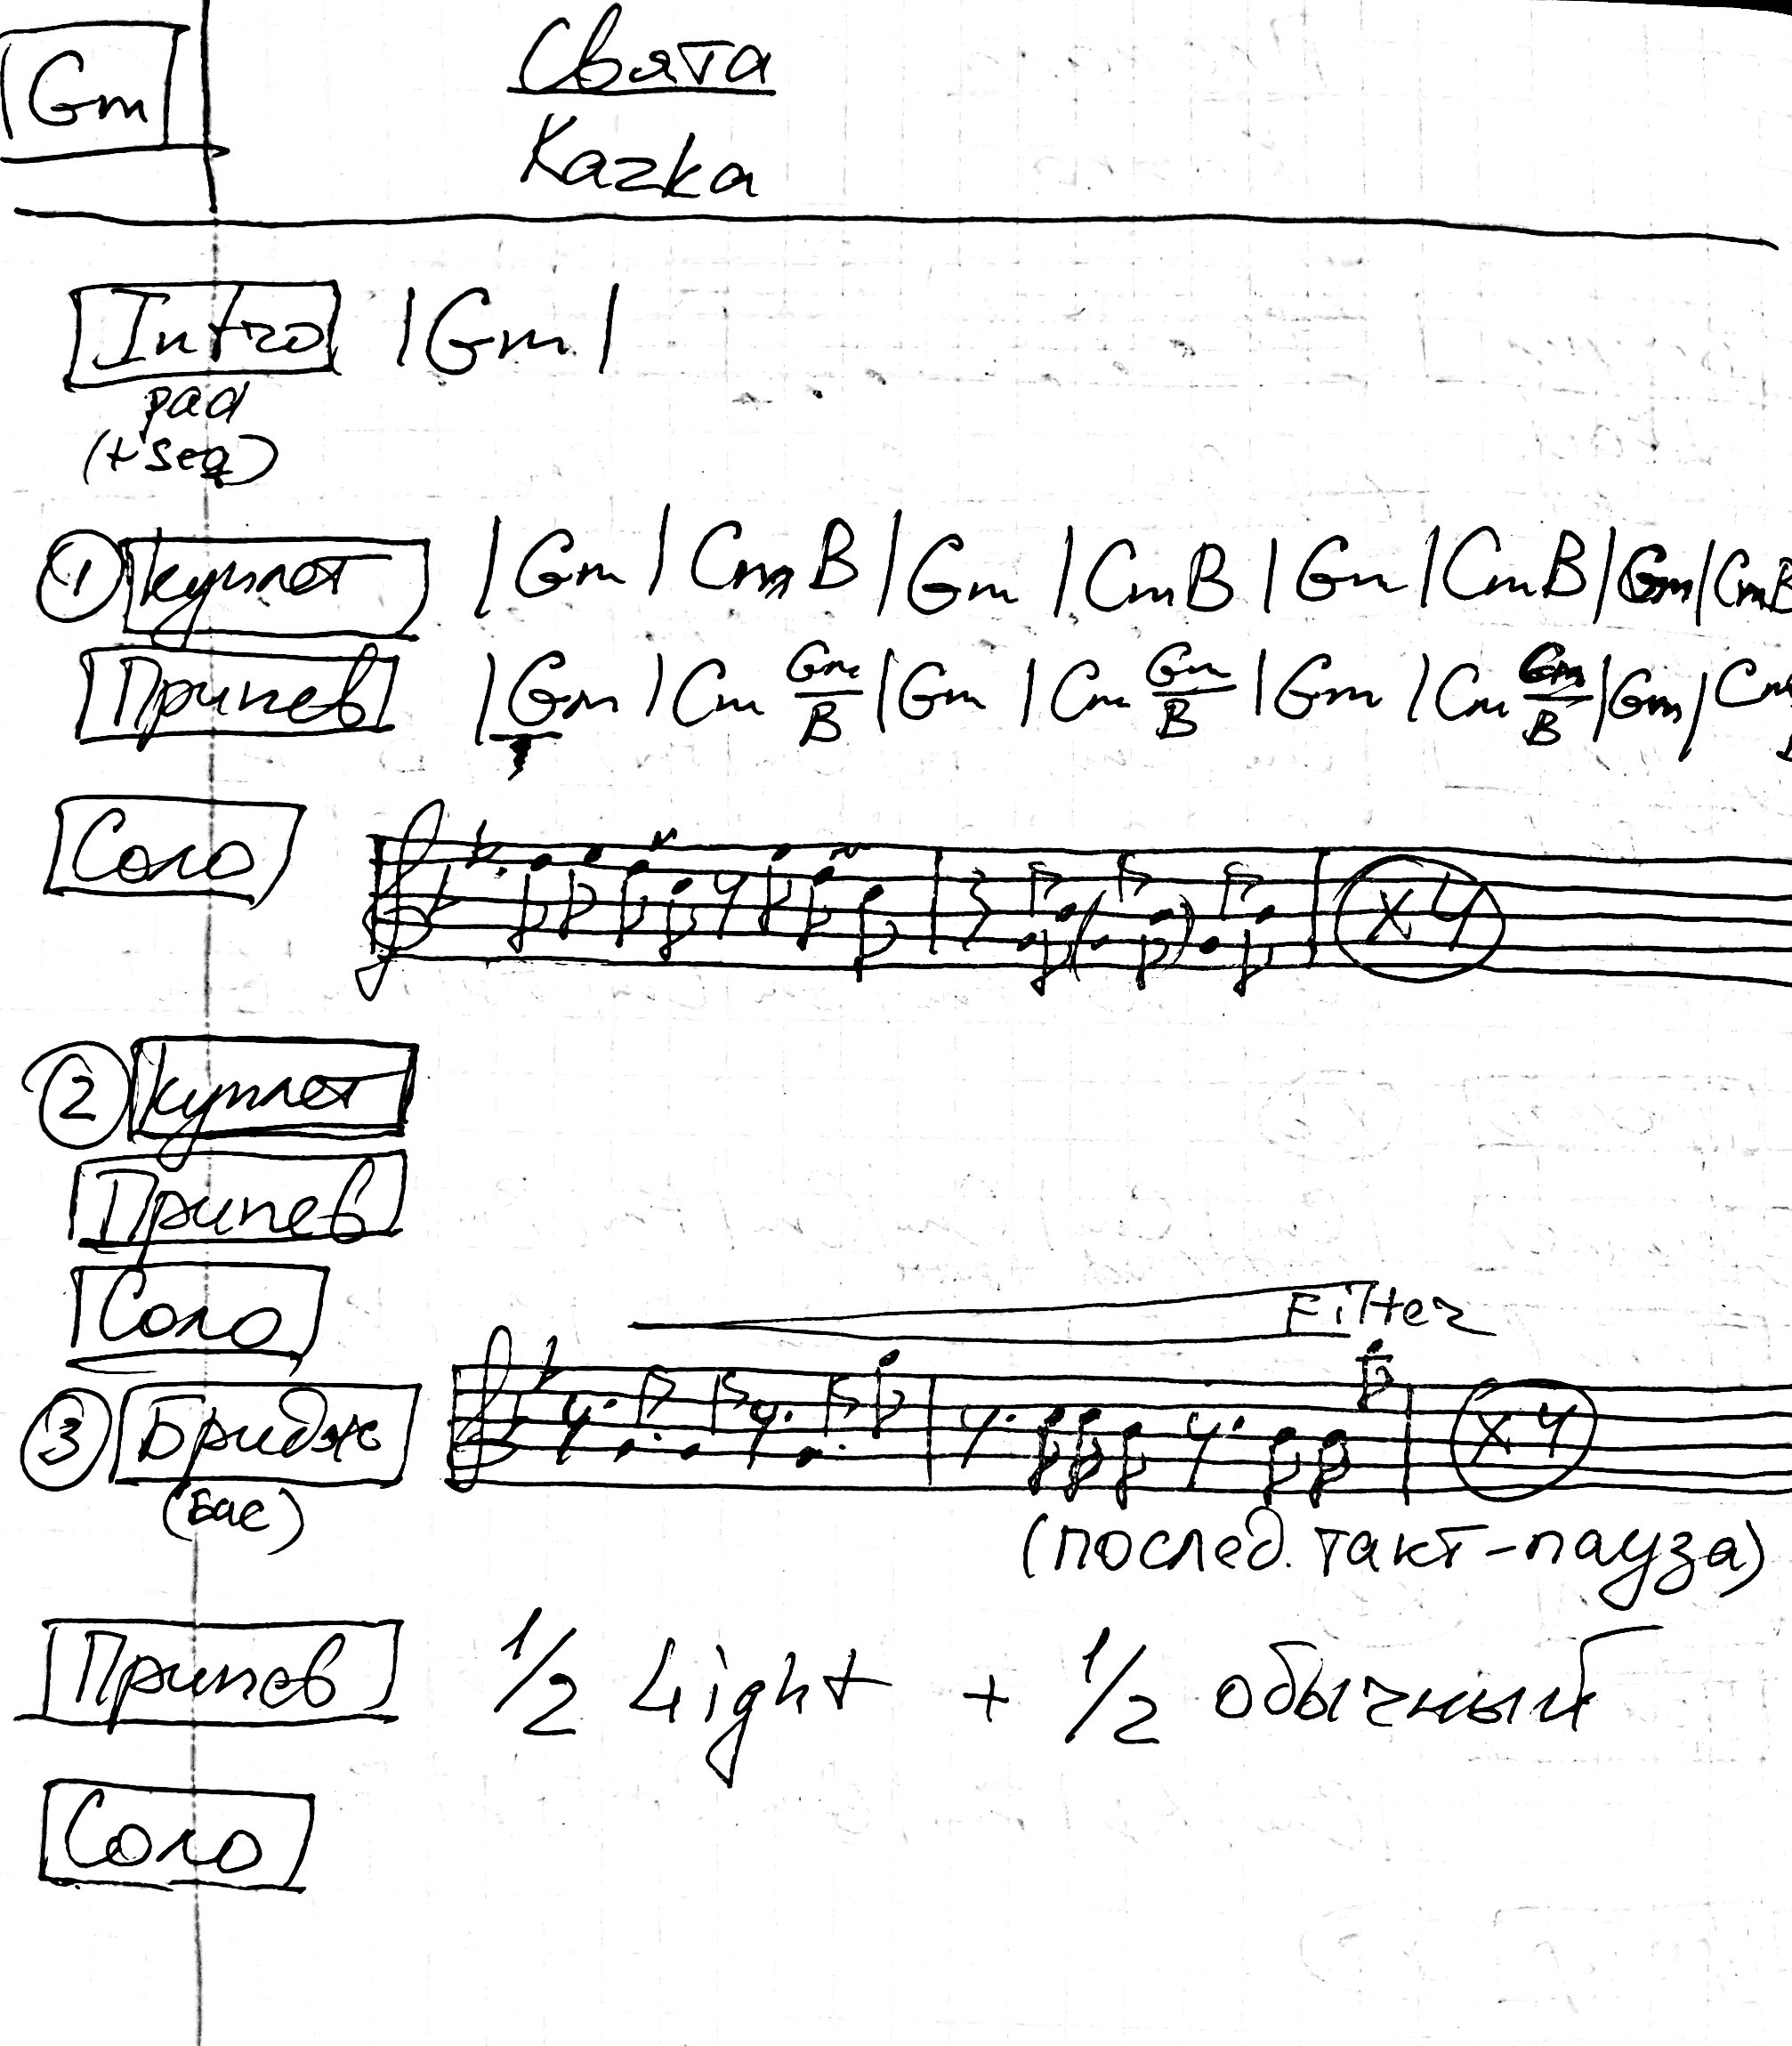 Gm
Свята
Kazka
Intro |Gm|
pad
(+seq)
① куплет |Gm|Cm B|Gm|CmB|Gm|CmB|Gm|CmB
Припев |Gm|Cm Gm/B|Gm|Cm Gm/B|Gm|Cm Gm/B|Gm|Cm
Соло x4
② куплет
Припев
Соло
Filter
③ Бридж x4
(Бас)
(послед. такт-пауза)
Припев 1/2 Light + 1/2 обычный
Соло